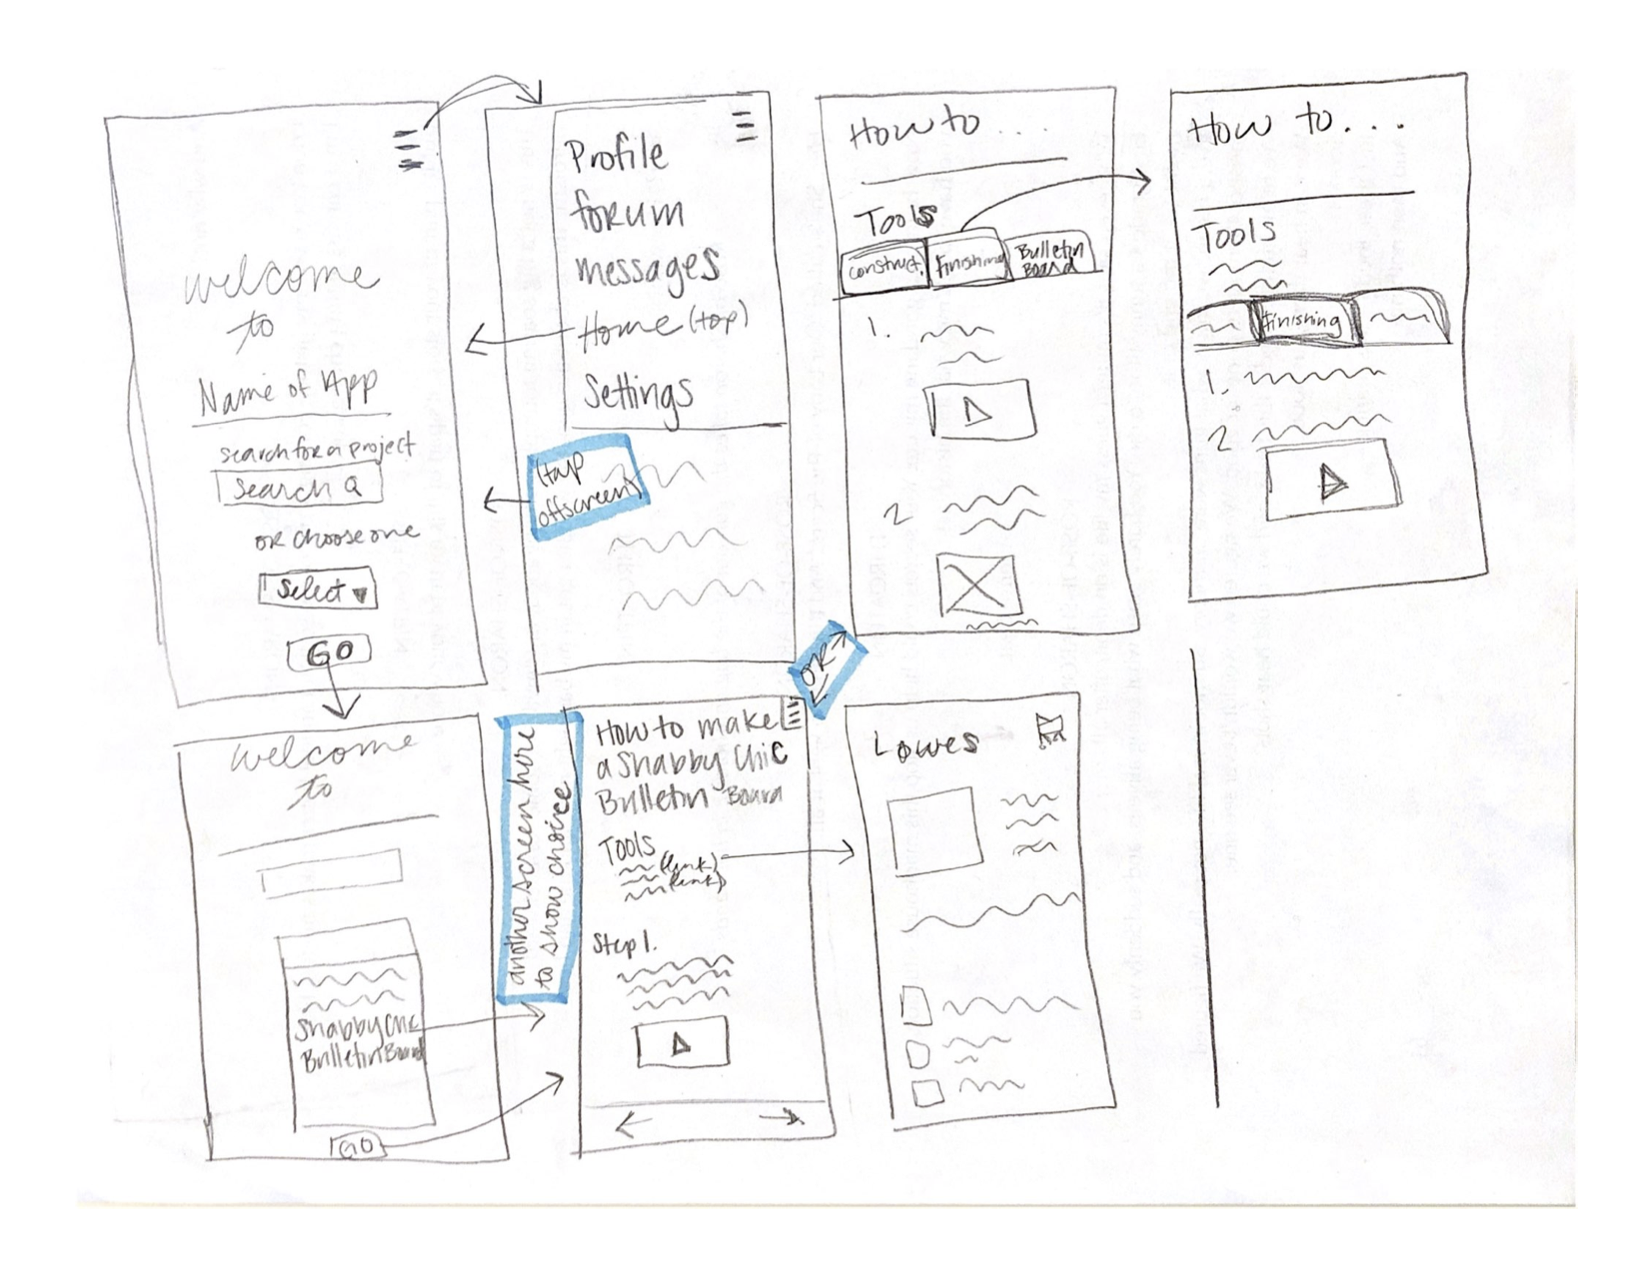 welcome
to
Name of App
search for a project
Search
OR choose one
Select
GO
Profile
forum
messages
Home (top)
Settings
(tap
offscreen)
How to ...
Tools
construct.
Finishing
Bulletin
Board
1.
2
How to...
Tools
Finishing
1.
2
welcome
to
Shabby Chic
Bulletin Board
GO
another screen here
to show choice
OR
How to make
a Shabby Chic
Bulletin Board
Tools
(link)
(link)
Step 1.
Lowes